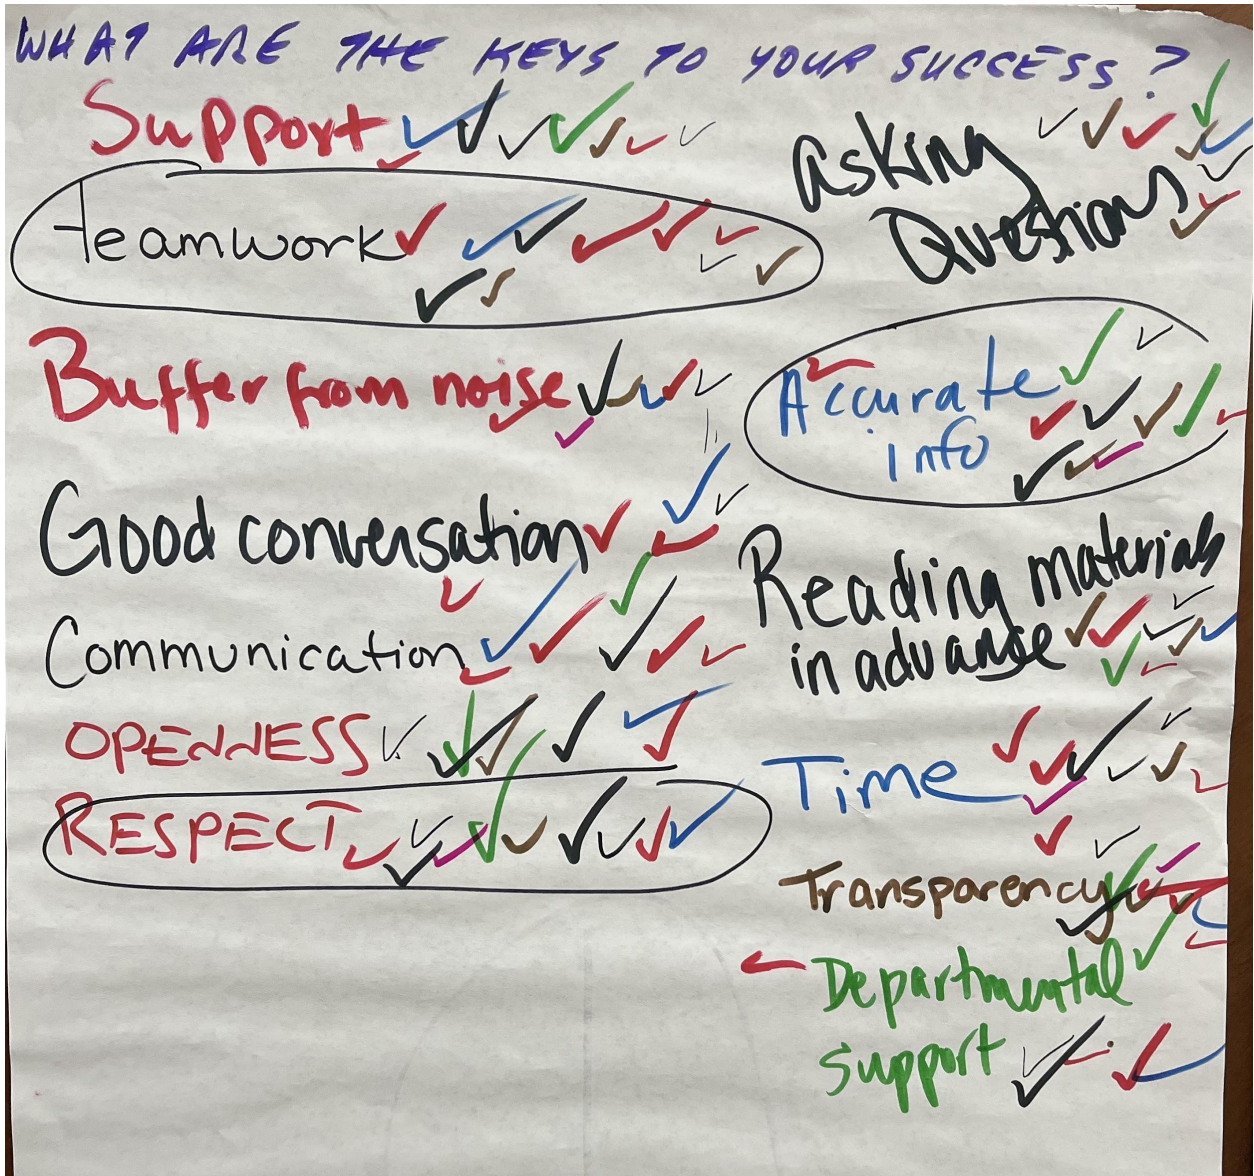 WHAT ARE THE KEYS TO YOUR SUCCESS?
Support
teamwork
Buffer from noise
Good conversation
Communication
OPENNESS
RESPECT
asking
Questions
Accurate
info
Reading materials
in advance
Time
Transparency
Departmental
support